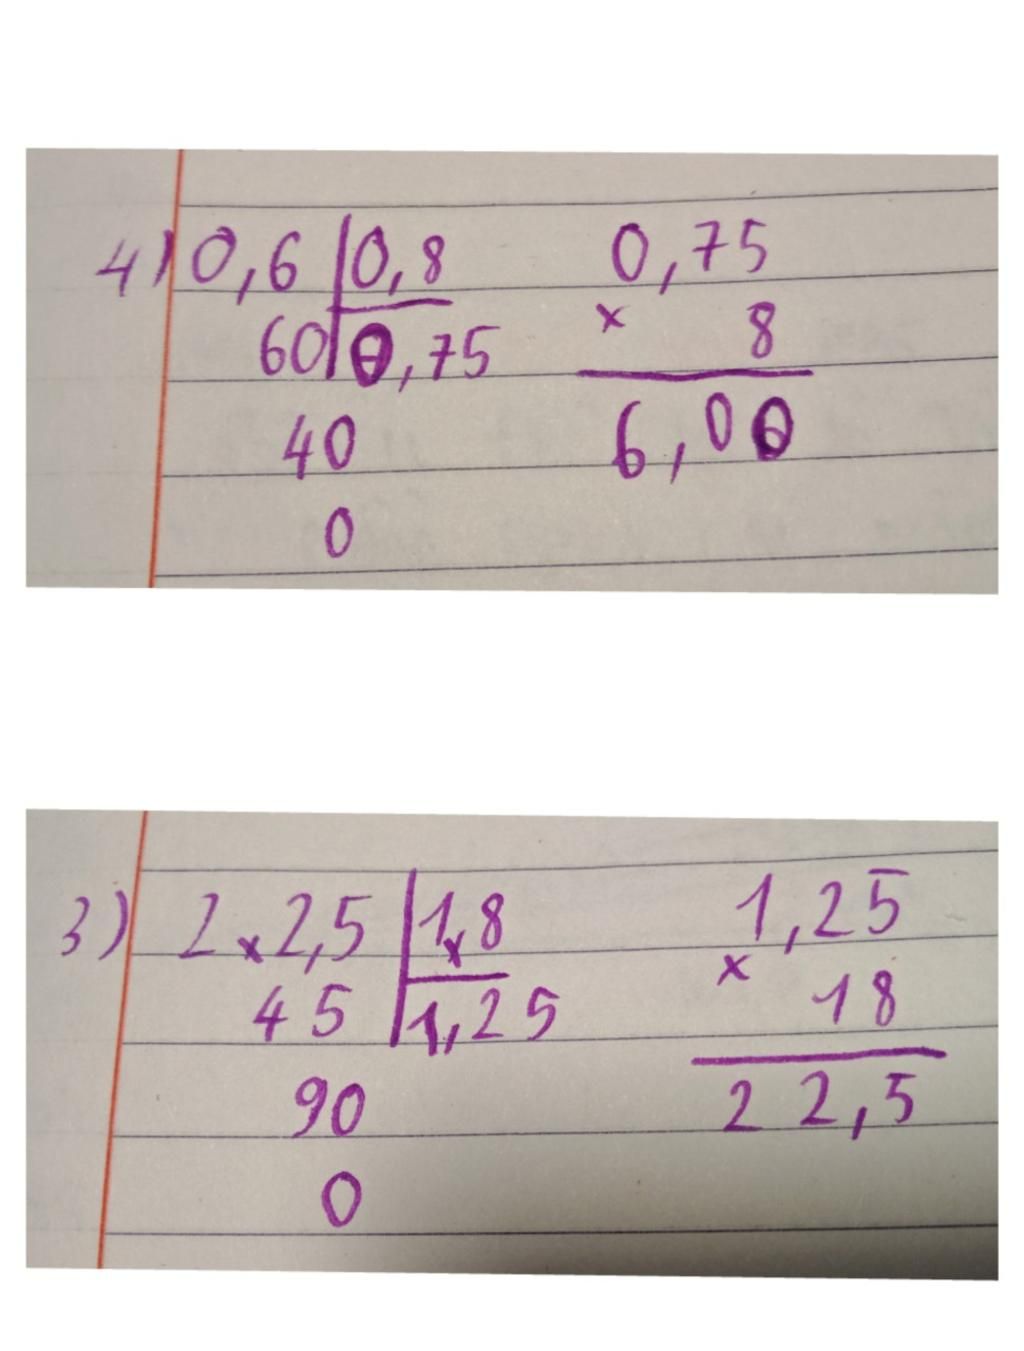 4) 0,6 | 0,8 0,75
60 | 0,75 × 8
40 6,00
0
3) 2 × 2,5 | 1,8 1,25
45 | 1,25 × 18
90 22,5
0